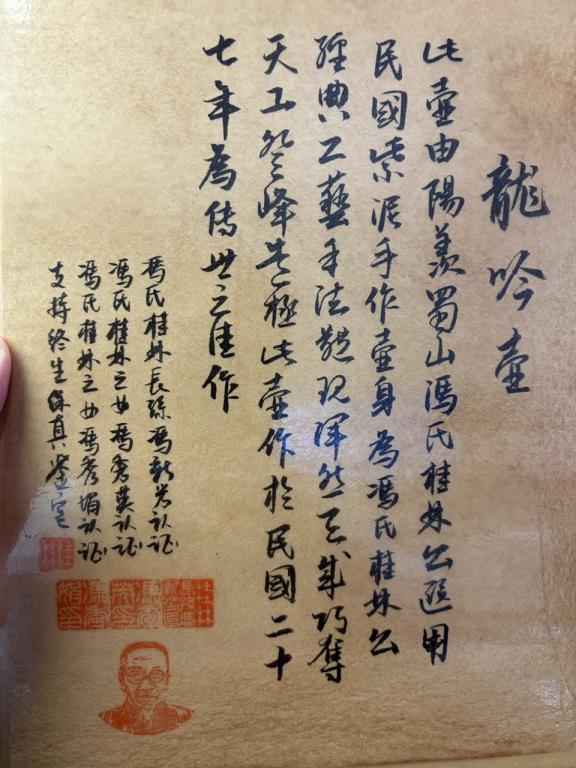 龍吟壺
此壺由陽羨蜀山馮氏桂林公選用
民國紫泥手作壺身為馮氏桂林公
經典工藝手法體現渾然天成巧奪
天工登峰造極此壺作於民國二十
七年為傳世之佳作
馮氏桂林長孫馮新岩认证
馮氏桂林之女馮秀英认证
馮氏桂林之女馮秀娟认证
支持終生保真鉴定